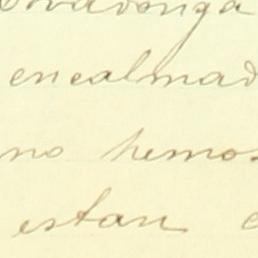 Covadonga
enealmad
no hemos
estan e